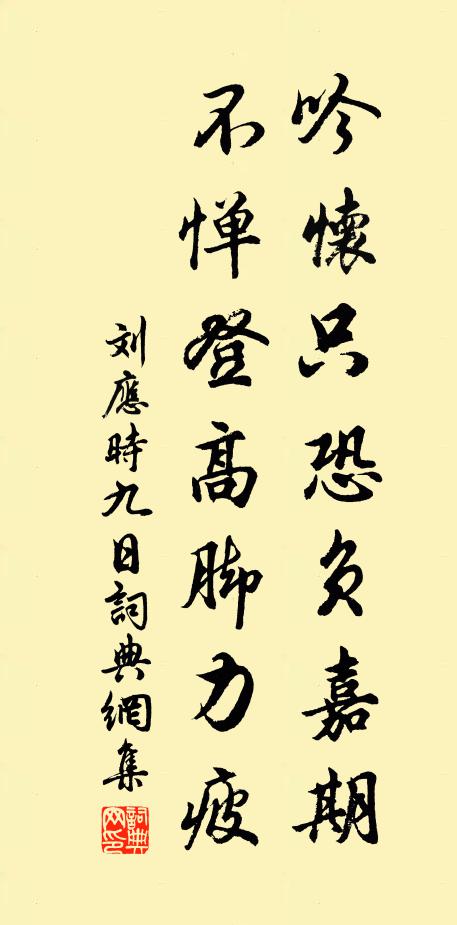 吟懷只恐負嘉期
不惮登高脚力疲
刘應時九日詞典網集
詞典網印